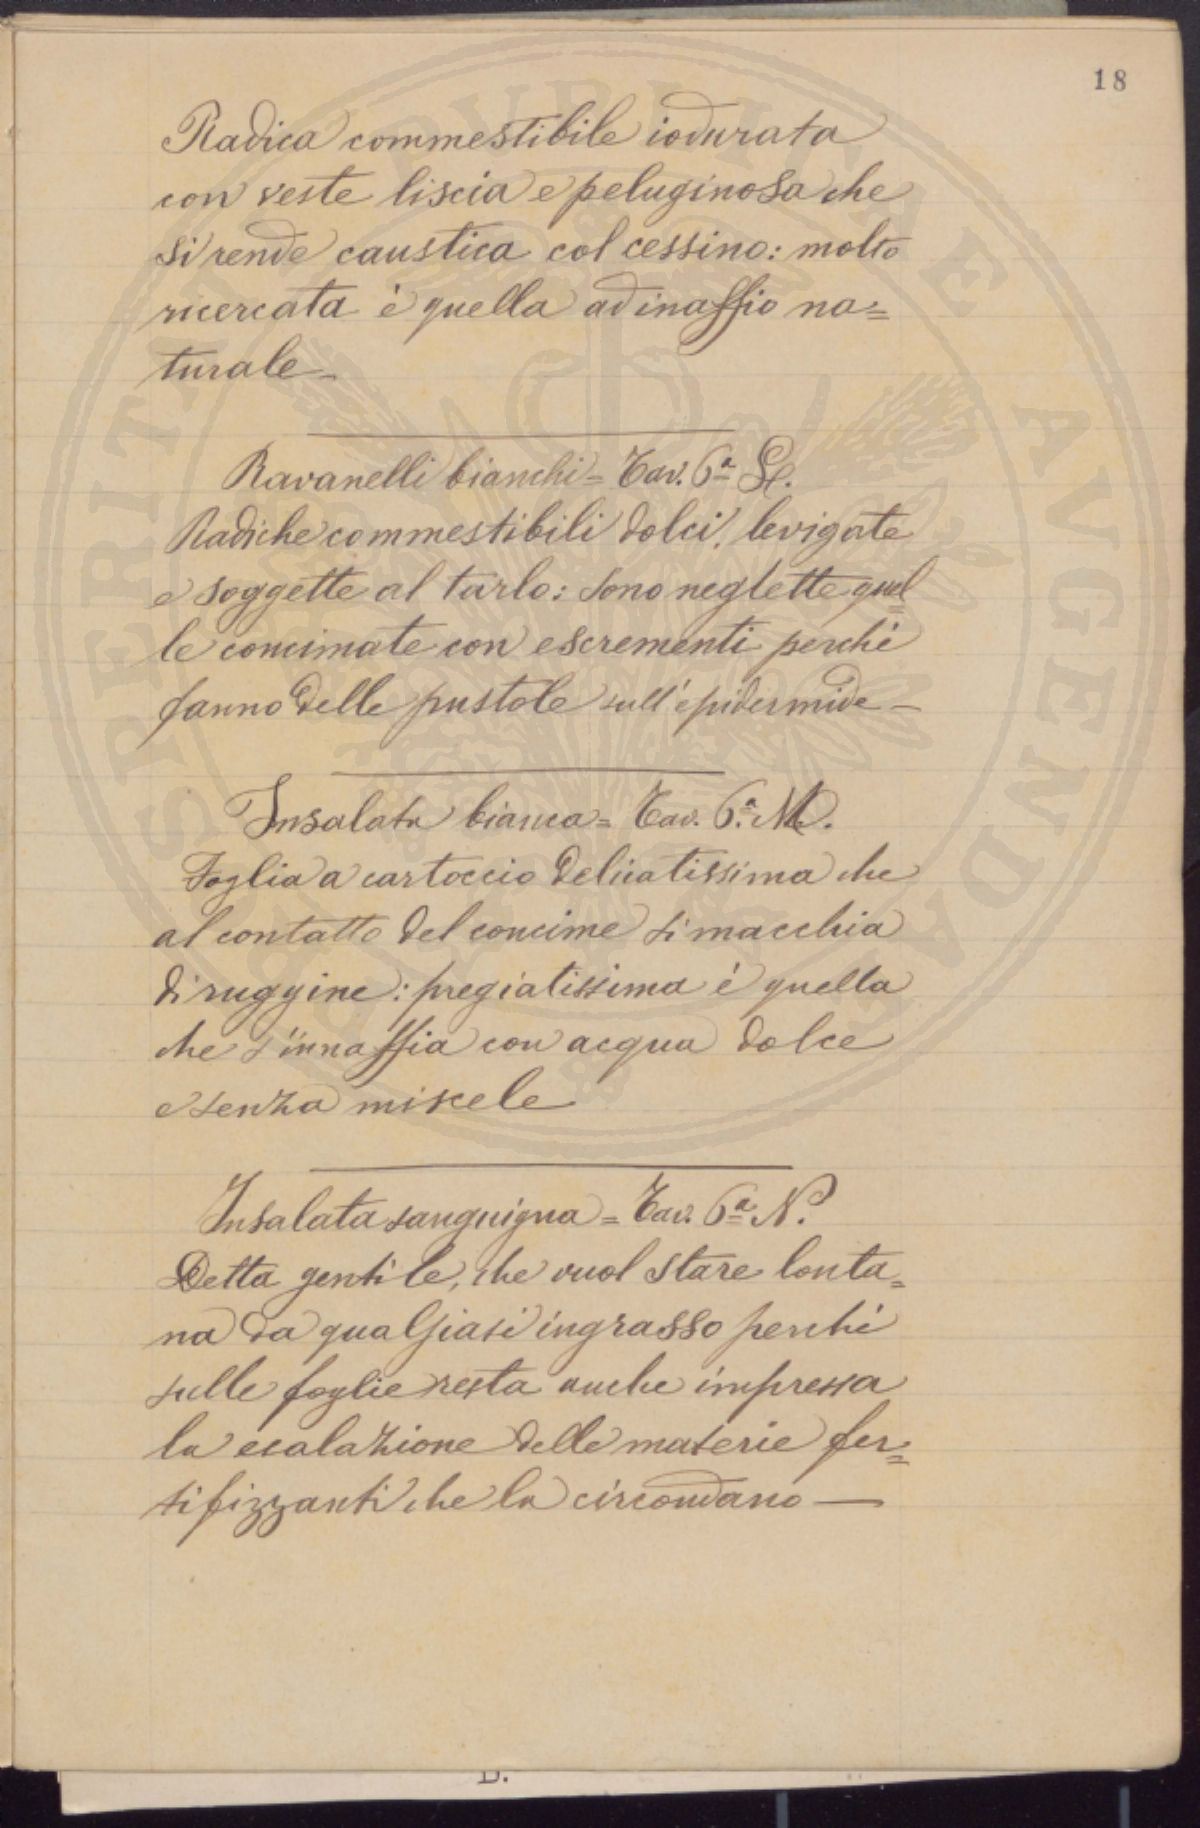 18
Radica commestibile iodurata
con veste liscia e peluginosa che
si rende caustica col cessino: molto
ricercata è quella ad inaffio na=
turale -
Ravanelli bianchi = Tav. 6ª L.
Radiche commestibili dolci, levigate
e soggette al tarlo: sono neglette quel
le concimate con escrementi perchè
fanno delle pustole sull'epidermide -
Insalata bianca = Tav. 6ª M.
Foglia a cartoccio delicatissima che
al contatto del concime si macchia
di ruggine: pregiatissima è quella
che s'innaffia con acqua dolce
e senza miscele
Insalata sanguigna = Tav. 6ª N.
Detta gentile, che vuol stare lonta=
na da qualsiasi ingrasso perchè
sulle foglie resta anche impressa
la esalazione delle materie fer=
tifizzanti che la circondano —
PROSPERITATI PVBLICAE AVGENDAE